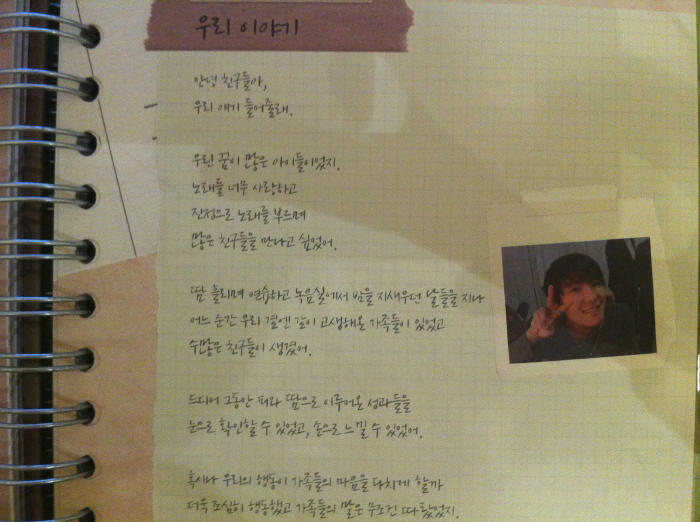 우리 이야기
안녕 친구들아,
우리 얘기 들어줄래.
우린 꿈이 많은 아이들이었지.
노래를 너무 사랑하고
진정으로 노래를 부르며
많은 친구들을 만나고 싶었어.
땀 흘리며 연습하고 녹음실에서 밤을 지새우던 날들을 지나
어느 순간 우리 곁엔 같이 고생해온 가족들이 있었고
수많은 친구들이 생겼어.
드디어 그동안 피와 땀으로 이루어온 성과들을
눈으로 확인할 수 있었고, 손으로 느낄 수 있었어.
혹시나 우리의 행동이 가족들의 마음을 다치게 할까
더욱 조심히 행동했고 가족들의 말은 무조건 따랐었지.